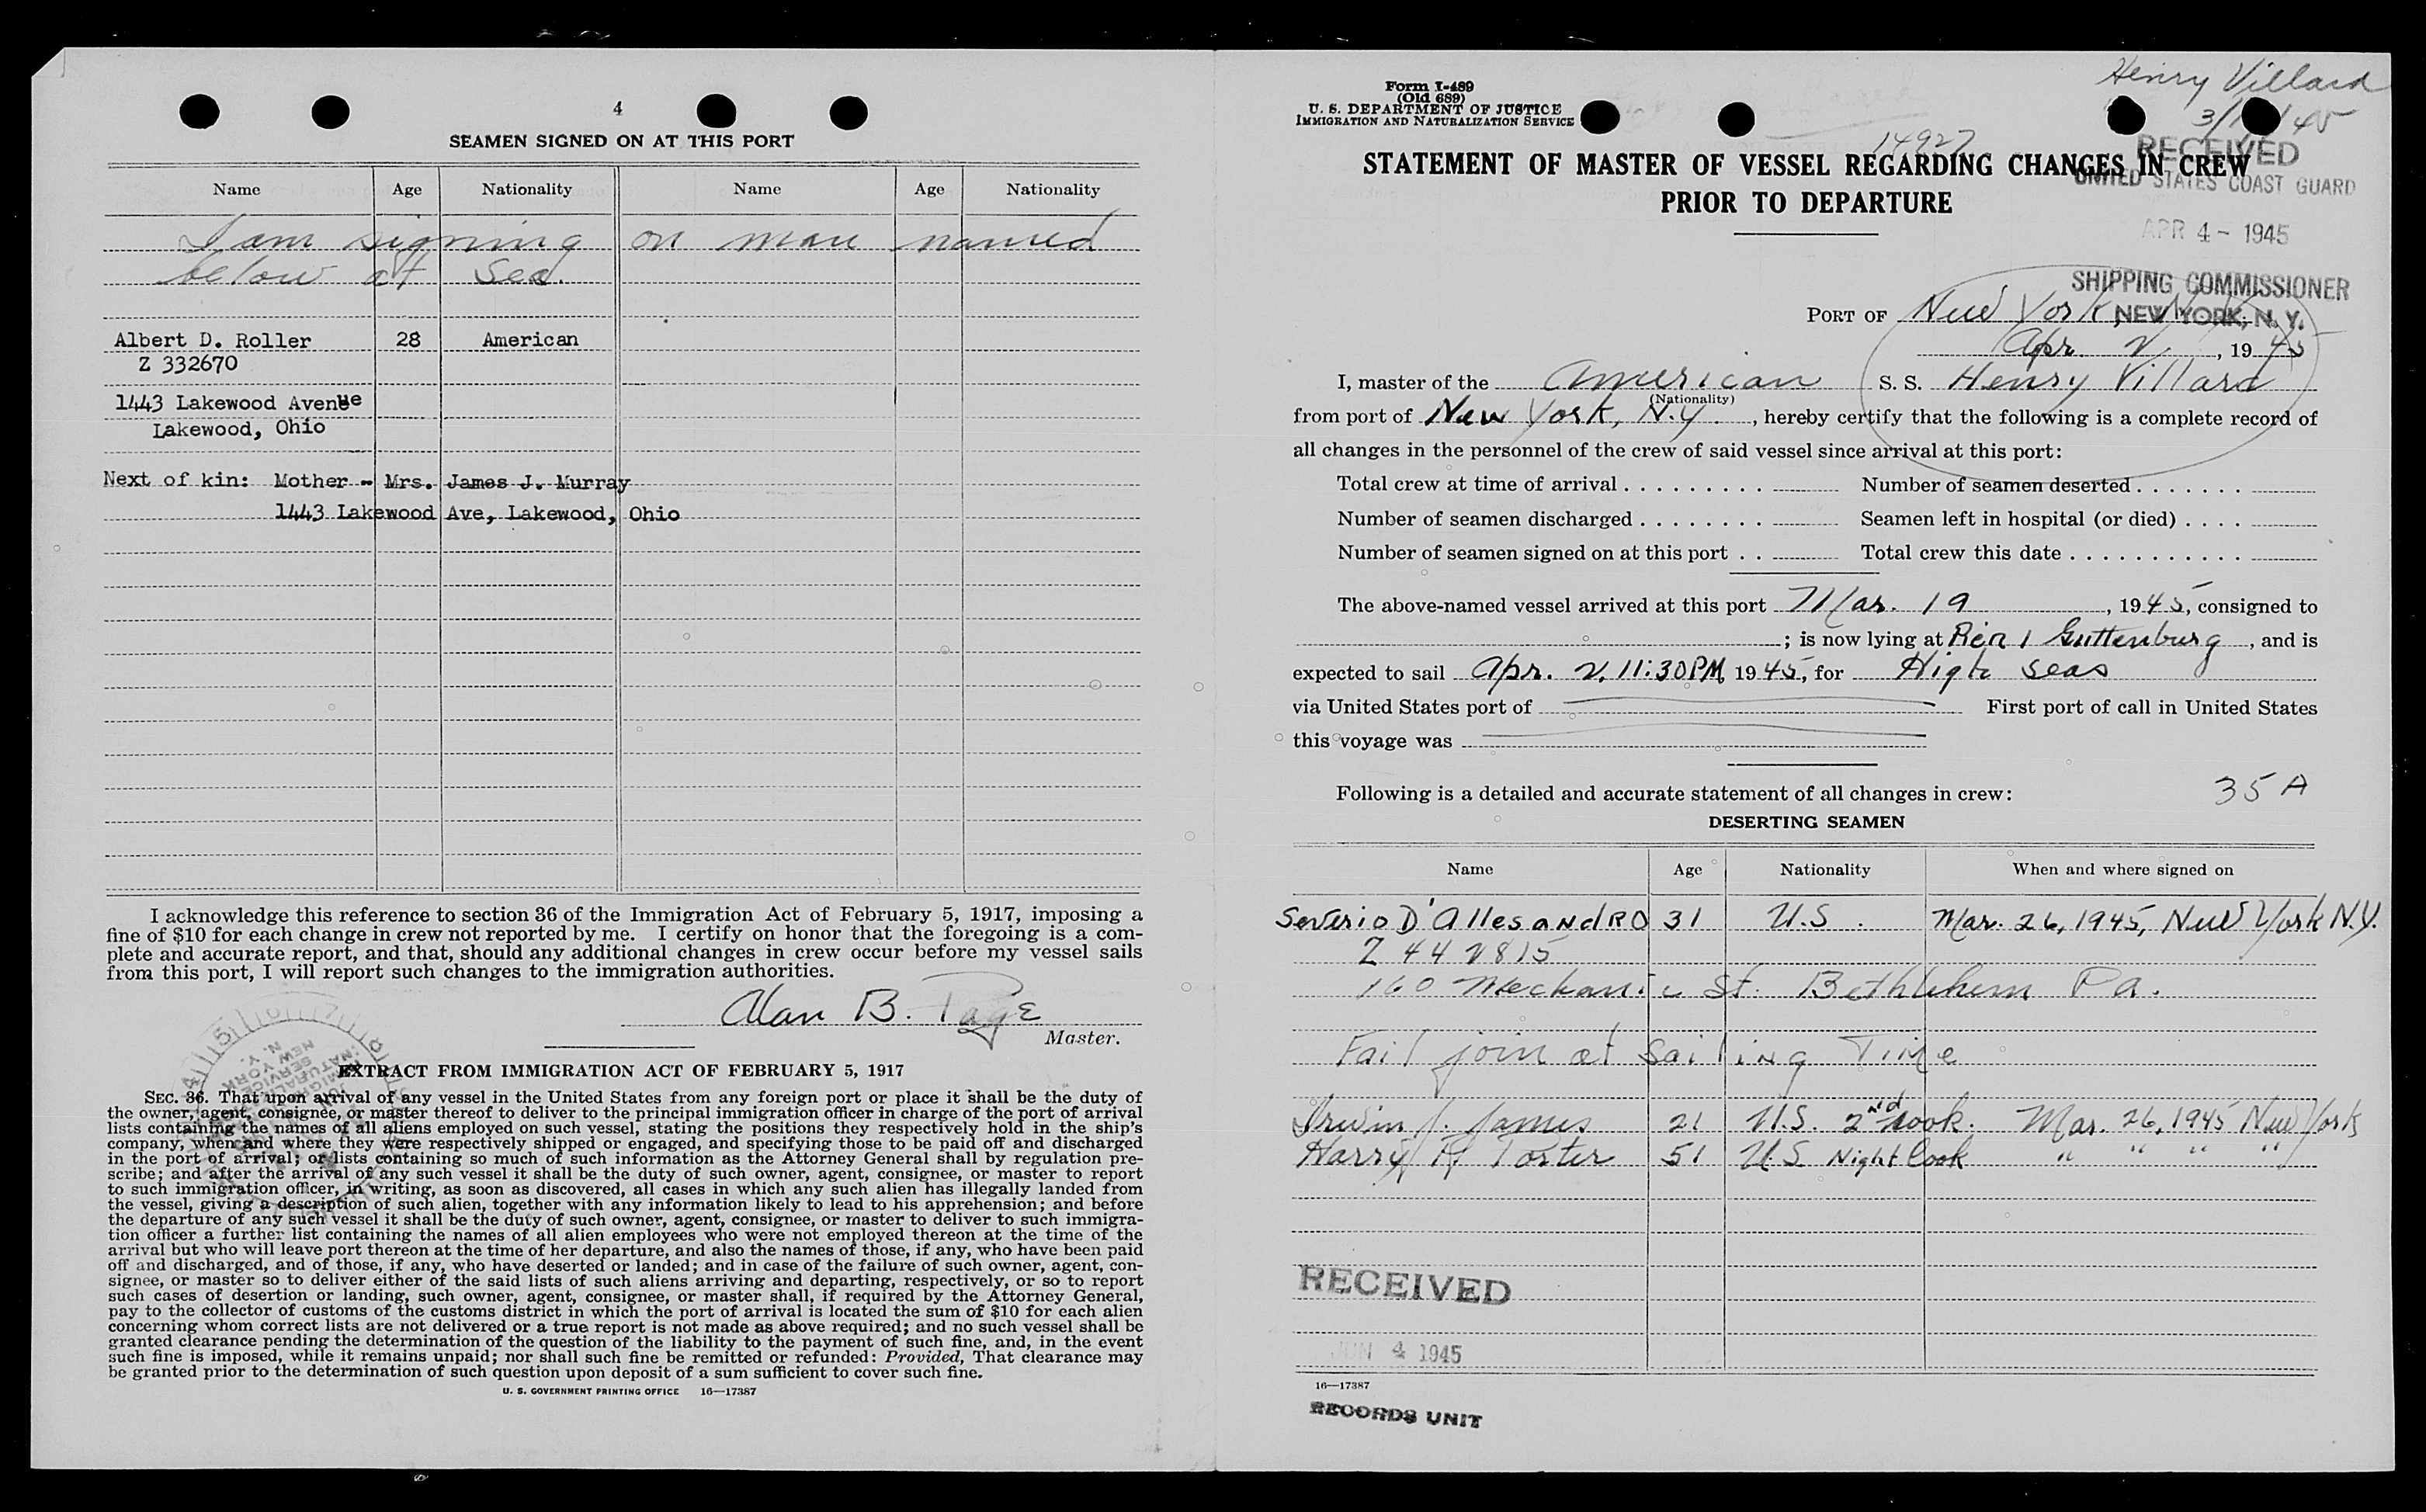 4
SEAMEN SIGNED ON AT THIS PORT
Name Age Nationality Name Age Nationality
I am signing on man named
below at sea.
Albert D. Roller 28 American
Z 332670
1443 Lakewood Avenue
Lakewood, Ohio
Next of kin: Mother - Mrs. James J. Murray
1443 Lakewood Ave, Lakewood, Ohio
I acknowledge this reference to section 36 of the Immigration Act of February 5, 1917, imposing a
fine of $10 for each change in crew not reported by me. I certify on honor that the foregoing is a com-
plete and accurate report, and that, should any additional changes in crew occur before my vessel sails
from this port, I will report such changes to the immigration authorities.
Alan B. Page
Master.
EXTRACT FROM IMMIGRATION ACT OF FEBRUARY 5, 1917
SEC. 36. That upon arrival of any vessel in the United States from any foreign port or place it shall be the duty of
the owner, agent, consignee, or master thereof to deliver to the principal immigration officer in charge of the port of arrival
lists containing the names of all aliens employed on such vessel, stating the positions they respectively hold in the ship's
company, when and where they were respectively shipped or engaged, and specifying those to be paid off and discharged
in the port of arrival; or lists containing so much of such information as the Attorney General shall by regulation pre-
scribe; and after the arrival of any such vessel it shall be the duty of such owner, agent, consignee, or master to report
to such immigration officer, in writing, as soon as discovered, all cases in which any such alien has illegally landed from
the vessel, giving a description of such alien, together with any information likely to lead to his apprehension; and before
the departure of any such vessel it shall be the duty of such owner, agent, consignee, or master to deliver to such immigra-
tion officer a further list containing the names of all alien employees who were not employed thereon at the time of the
arrival but who will leave port thereon at the time of her departure, and also the names of those, if any, who have been paid
off and discharged, and of those, if any, who have deserted or landed; and in case of the failure of such owner, agent, con-
signee, or master so to deliver either of the said lists of such aliens arriving and departing, respectively, or so to report
such cases of desertion or landing, such owner, agent, consignee, or master shall, if required by the Attorney General,
pay to the collector of customs of the customs district in which the port of arrival is located the sum of $10 for each alien
concerning whom correct lists are not delivered or a true report is not made as above required; and no such vessel shall be
granted clearance pending the determination of the question of the liability to the payment of such fine, and, in the event
such fine is imposed, while it remains unpaid; nor shall such fine be remitted or refunded: Provided, That clearance may
be granted prior to the determination of such question upon deposit of a sum sufficient to cover such fine.
U. S. GOVERNMENT PRINTING OFFICE 16—17387
Form I-489
(Old 689)
U. S. DEPARTMENT OF JUSTICE
IMMIGRATION AND NATURALIZATION SERVICE
Henry Villard
14927
RECEIVED
UNITED STATES COAST GUARD
APR 4 - 1945
SHIPPING COMMISSIONER
NEW YORK, N. Y.
STATEMENT OF MASTER OF VESSEL REGARDING CHANGES IN CREW
PRIOR TO DEPARTURE
PORT OF New York, N.Y.
Apr. 2, 1945
I, master of the American S. S. Henry Villard
(Nationality)
from port of New York, N.Y., hereby certify that the following is a complete record of
all changes in the personnel of the crew of said vessel since arrival at this port:
Total crew at time of arrival . . . . . . . . . . Number of seamen deserted . . . . . . .
Number of seamen discharged . . . . . . . . Seamen left in hospital (or died) . . . .
Number of seamen signed on at this port . . Total crew this date . . . . . . . . . . .
The above-named vessel arrived at this port Mar. 19, 1945, consigned to
; is now lying at Pier 1 Guttenburg, and is
expected to sail Apr. 2, 11:30PM, 1945, for High seas
via United States port of First port of call in United States
this voyage was
Following is a detailed and accurate statement of all changes in crew: 35A
DESERTING SEAMEN
Name Age Nationality When and where signed on
Severio D'AllesandRO 31 U.S. Mar. 26, 1945, New York N.Y.
Z 442815
160 Mechanic St. Bethlehem Pa.
Fail join at Sailing Time
Irwin J. James 21 U.S. 2nd cook. Mar. 26, 1945 New York
Harry R Porter 51 U.S Night Cook " " " "
RECEIVED
JUN 4 1945
16—17387
RECORDS UNIT